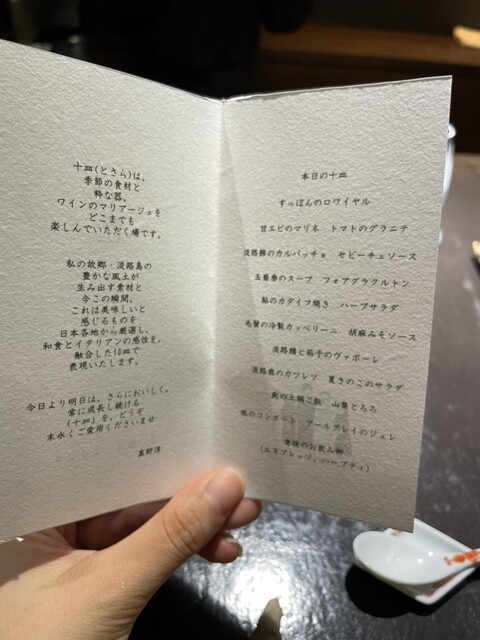 十皿(とさら)は、
季節の食材と
粋な器、
ワインのマリアージュを
どこまでも
楽しんでいただく場です。
私の故郷・淡路島の
豊かな風土が
生み出す素材と
今この瞬間、
これは美味しいと
感じるものを
日本各地から厳選し、
和食とイタリアンの感性を、
融合した10皿で
表現いたします。
今日より明日は、さらにおいしく。
常に成長し続ける
「十皿」を、どうぞ
末永くご愛用くださいませ
本日の十皿
すっぽんのロワイヤル
甘エビのマリネ トマトのグラニテ
淡路鱒のカルパッチョ セビーチェソース
玉蜀黍のスープ フォアグラクルトン
鮎のカダイフ焼き ハーブサラダ
毛蟹の冷製カッペリーニ 胡麻みそソース
淡路鱧と茄子のヴァポーレ
淡路鹿のカツレツ 夏きのこのサラダ
土鍋ご飯 山葵とろろ
桃のコンポート アールグレイのジュレ
食後のお飲み物
(エスプレッソ、ハーブティ)